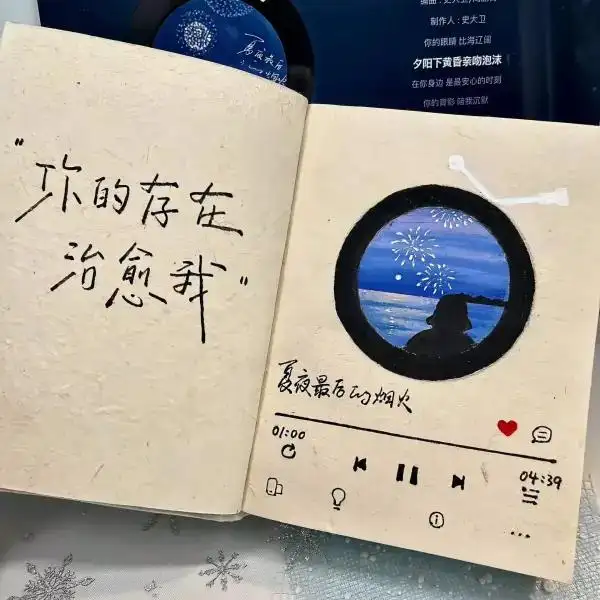 编曲：史大卫
制作人：史大卫
你的眼睛 比海辽阔
夕阳下黄昏亲吻泡沫
在你身边 是最安心的时刻
你的背影 陪我沉默
夏夜最后
的烟火
"你的存在
治愈我"
夏夜最后的烟火
01:00
04:39